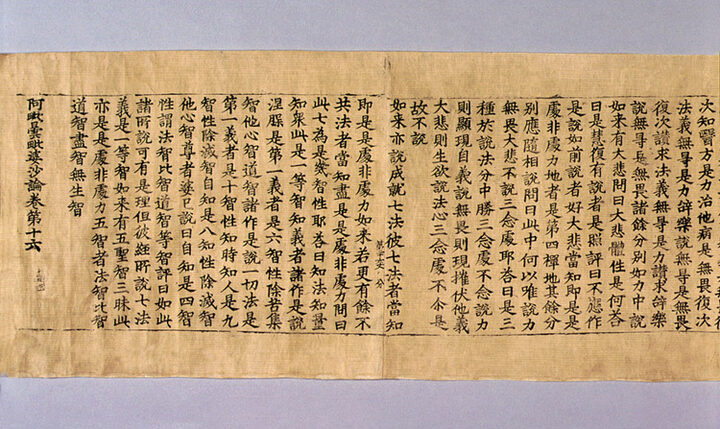 次知醫方是力治他病是無畏復次
法義無㝵是力辝樂說無㝵是無畏
復次讃求法義無㝵是力讃求辝樂
說無㝵是無畏諸餘分別如力中說
如来有大悲問曰大悲體性是何荅
曰是慧復有說者是照評曰不應作
是說如前說者好大悲當知即是是
處非處力地者是第四禪地其餘分
別應隨相說問曰此中何以唯說力
無畏大悲不說三念處耶荅曰是三
種於說法分中勝三念處不念說力
則顯現自義說無畏則現摧伏他義
大悲則生欲說法心三念處不尒是
故不說
如来亦說成就七法彼七法者當知
即是是處非處力如来若更有餘不
共法者當知盡是是處非處力問曰
此七為是幾智性耶荅曰知法知量
知衆此是一等智知義者諸作是說
涅槃是第一義者是六智性除苦集
智他心智道智諸作是說一切法是
第一義者是十智性知時知人是九
智性除滅智自知是八知性除滅智
他心智尊者婆已說曰自知是四智
性謂法智比智道智等智評曰如此
諸所說可有是理但彼經所說七法
義是一等智如来有五聖智三昧此
亦是是處非處力五智者法智比智
道智盡智無生智
阿毗曇毗婆沙論卷第十六